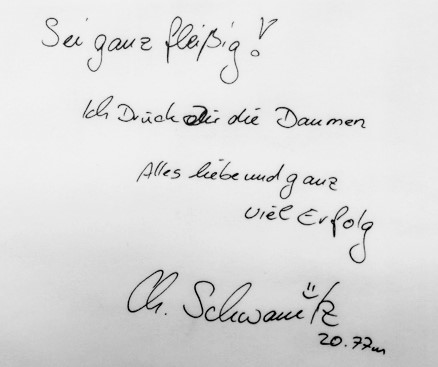 Sei ganz fleißig!
Ich Drück Dir die Daumen
Alles liebe und ganz
viel Erfolg
Ch. Schwanitz
20.77m